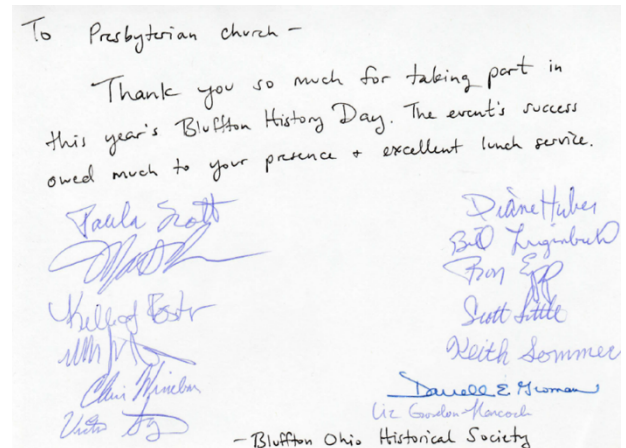 To Presbyterian church -
Thank you so much for taking part in
this year's Bluffton History Day. The event's success
owed much to your presence + excellent lunch service.
Paula Scott
Diane Huber
Bill Luginbuhl
Ron Epp
Scott Little
Keith Sommer
Darrell E Groman
Liz Gordon-Hancock
- Bluffton Ohio Historical Society